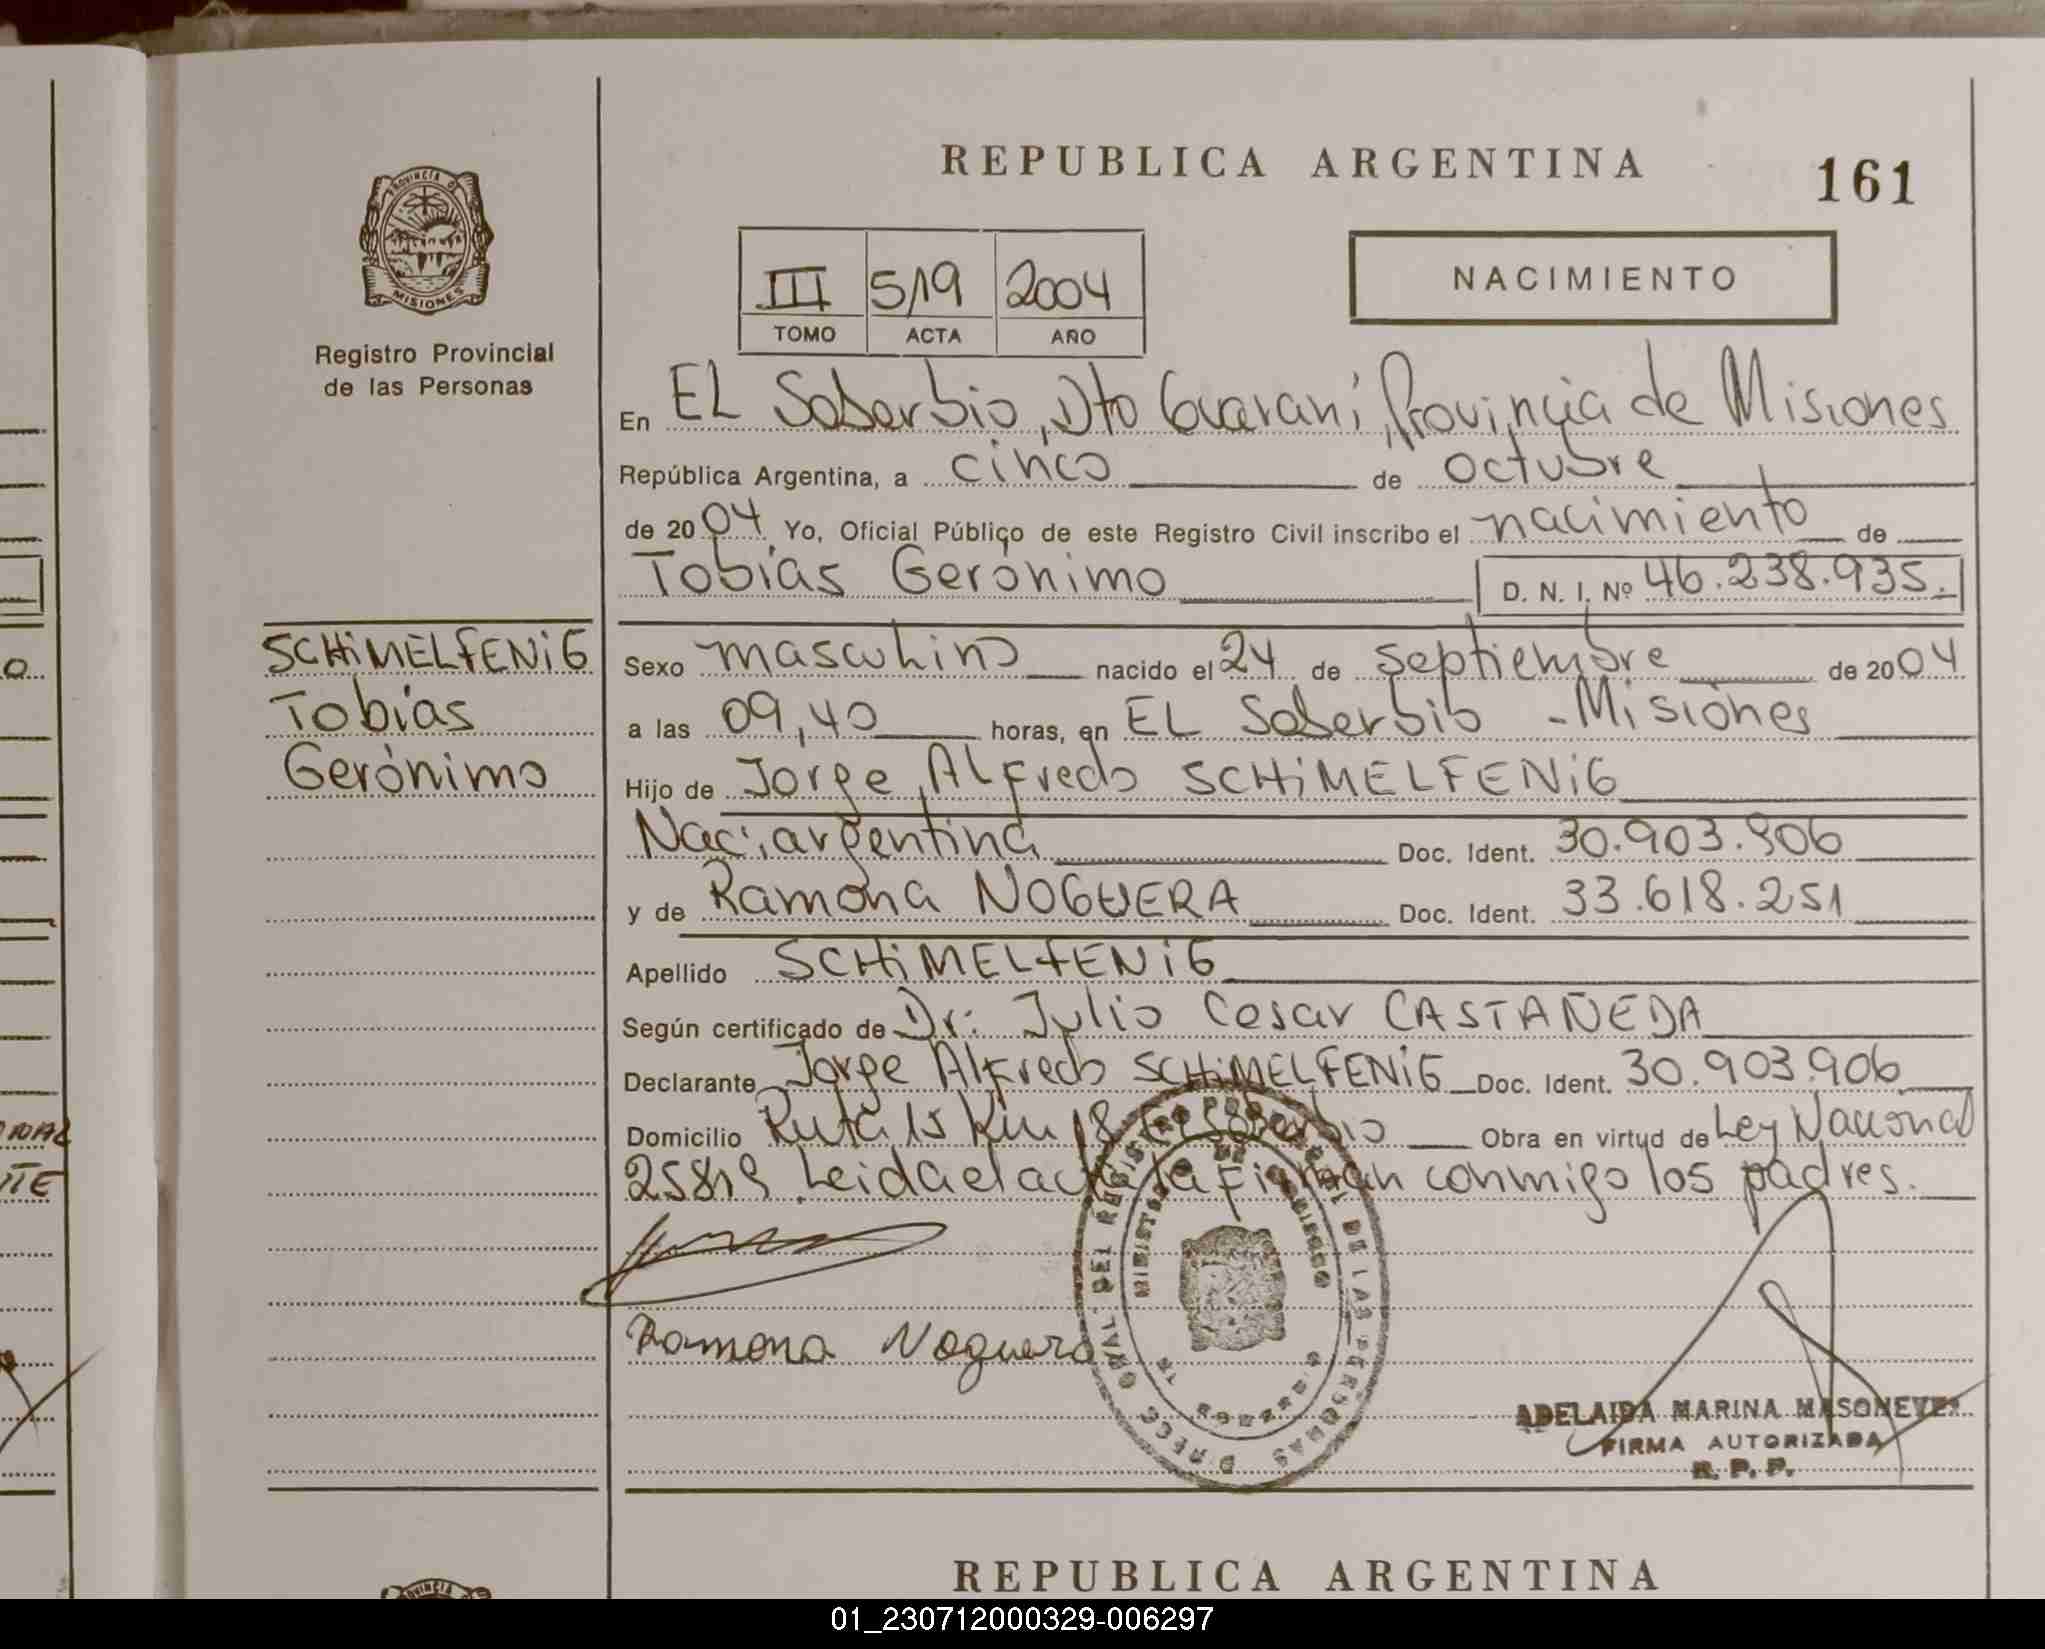 REPUBLICA ARGENTINA
161
PROVINCIA DE
MISIONES
Registro Provincial
de las Personas
III 519 2004
TOMO ACTA AÑO
NACIMIENTO
En EL Soberbio, Dto Guaraní, Provincia de Misiones
República Argentina, a cinco de octubre
de 2004 Yo, Oficial Público de este Registro Civil inscribo el nacimiento de
Tobías Gerónimo D. N. I. Nº 46.238.935.
SCHiMELFENiG
Tobías
Gerónimo
Sexo masculino nacido el 24 de septiembre de 2004
a las 09,40 horas, en EL Soberbio - Misiones
Hijo de Jorge Alfredo SCHiMELFENiG
Nac: argentina Doc. Ident. 30.903.906
y de Ramona NOGUERA Doc. Ident. 33.618.251
Apellido SCHiMELFENiG
Según certificado de Dr: Julio Cesar CASTAÑEDA
Declarante Jorge Alfredo SCHiMELFENiG Doc. Ident. 30.903.906
Domicilio Ruta 15 Km 18 El Soberbio Obra en virtud de Ley Nacional
25819 Leida el acta la Firman conmigo los padres.
Ramona Noguera
ADELAIDA MARINA
FIRMA AUTORIZADA
R. P. P.
REPUBLICA ARGENTINA
01_230712000329-006297